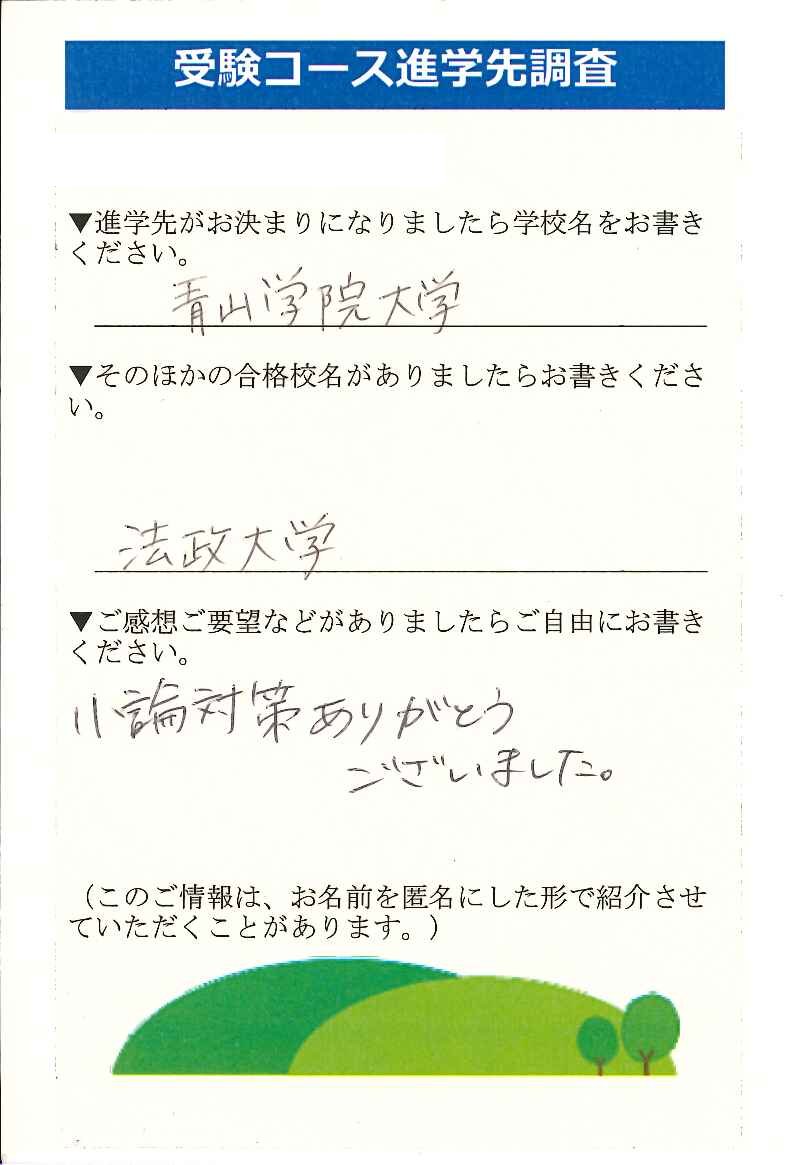 受験コース進学先調査
▼進学先がお決まりになりましたら学校名をお書き
ください。
青山学院大学
▼そのほかの合格校名がありましたらお書きくださ
い。
法政大学
▼ご感想ご要望などがありましたらご自由にお書き
ください。
小論対策ありがとう
ございました。
（このご情報は、お名前を匿名にした形で紹介させ
ていただくことがあります。）